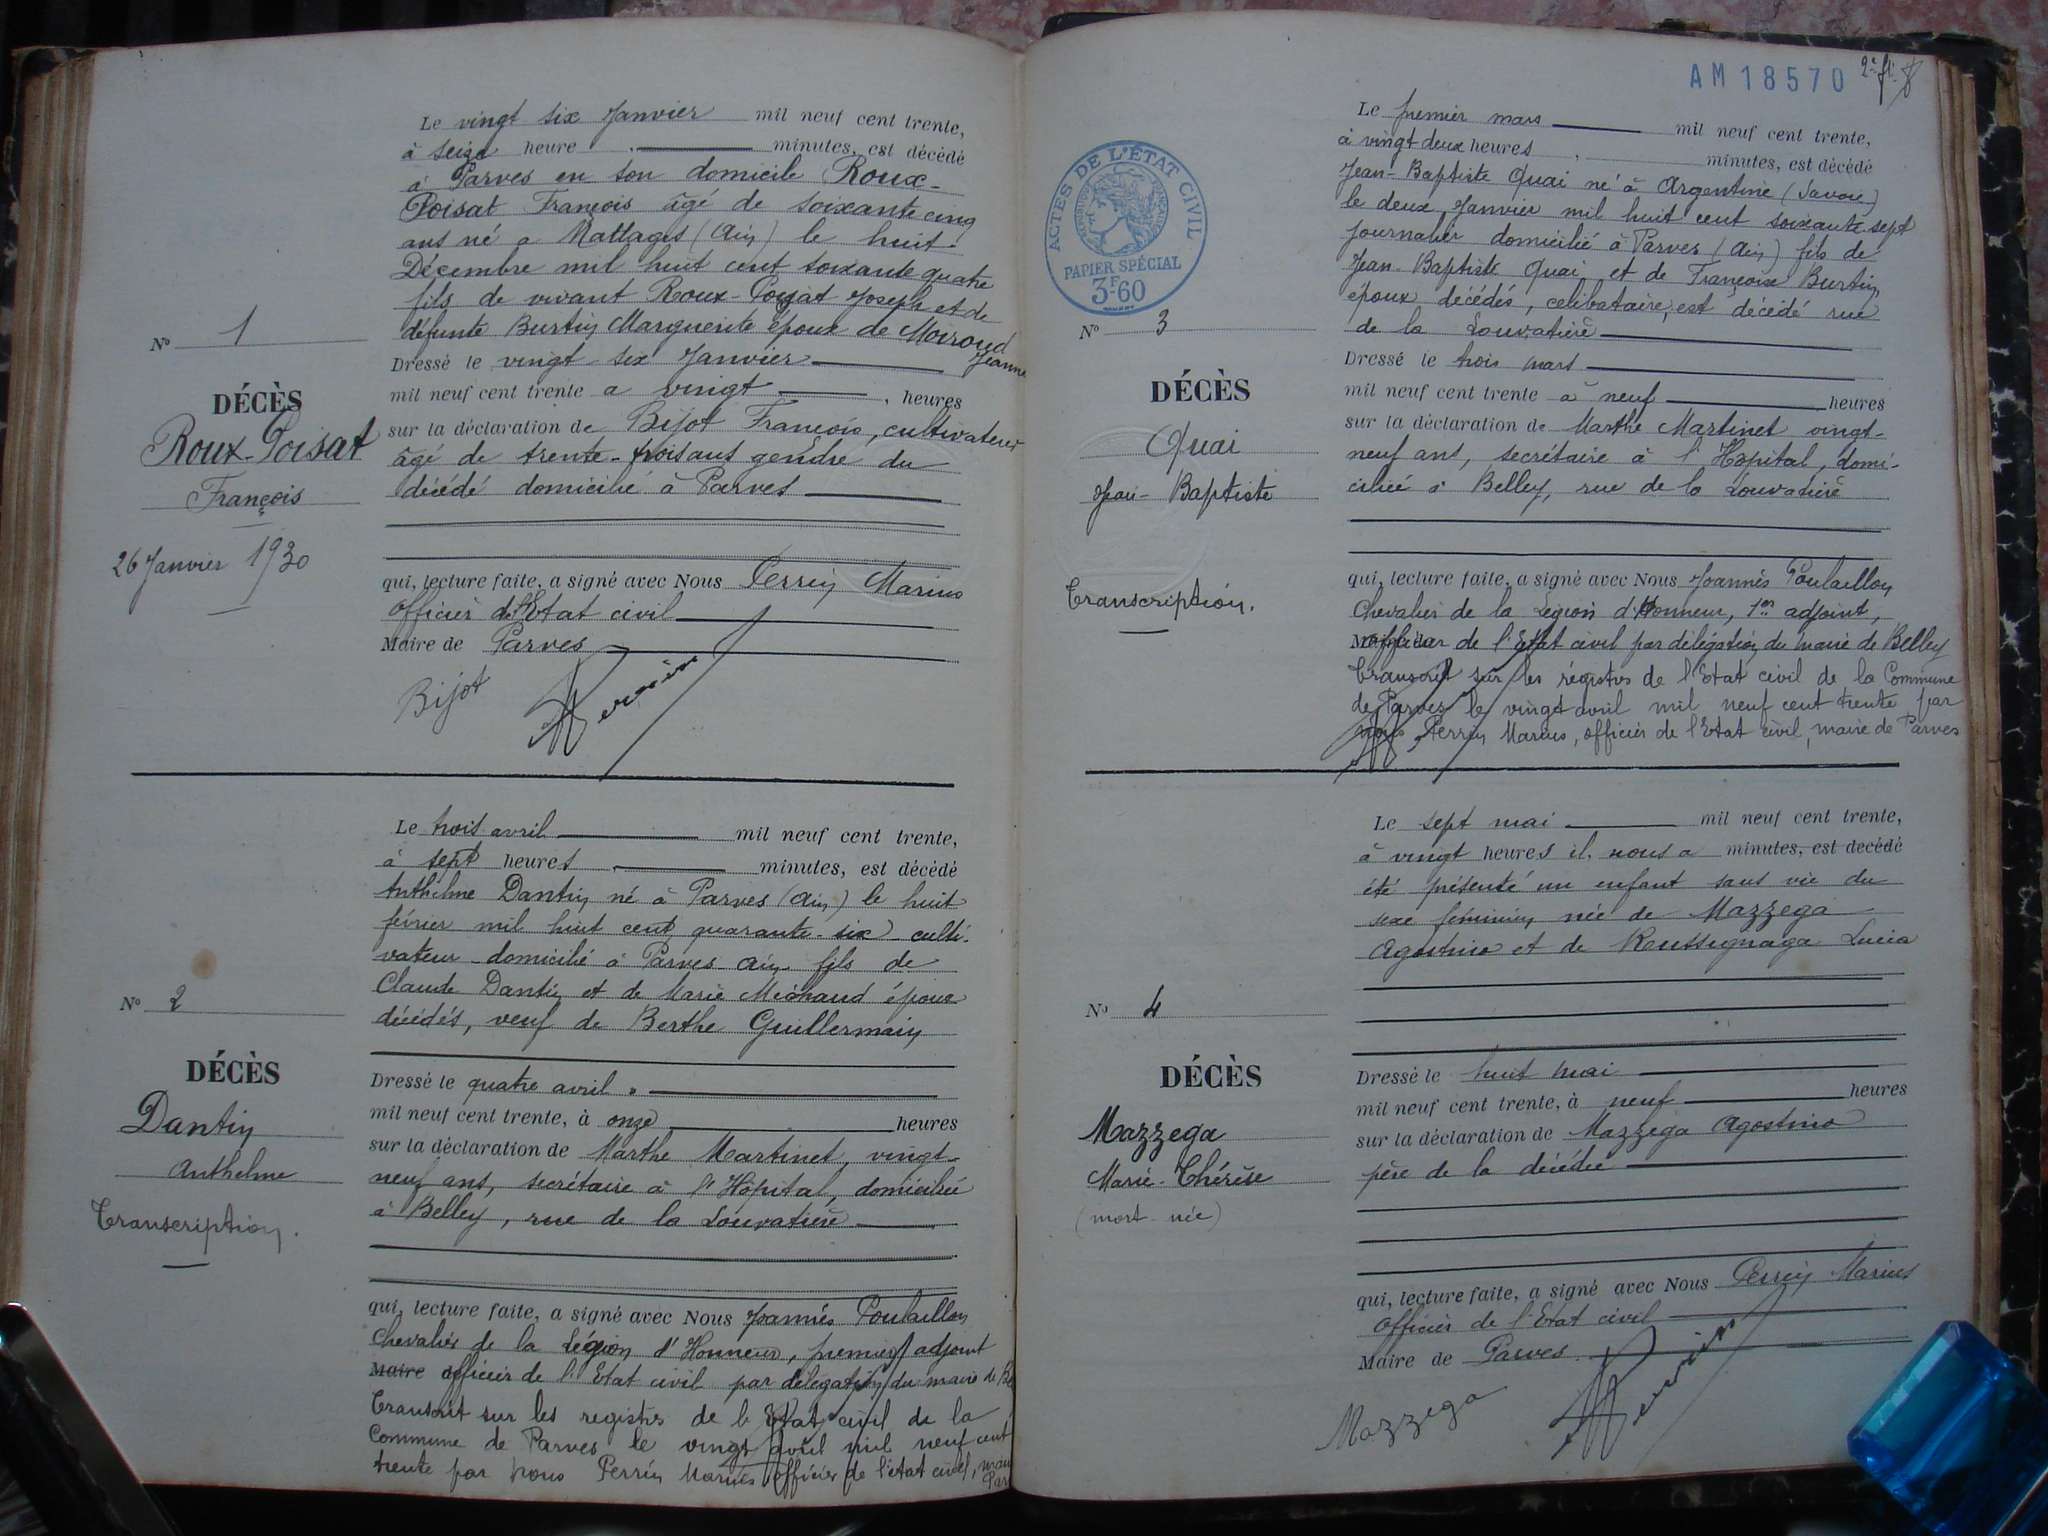 Le vingt six Janvier mil neuf cent trente,
à seize heure minutes, est décédé
à Parves en son domicile Roux-
Poisat François âgé de soixante cinq
ans né a Nattages (Ain) le huit
Décembre mil huit cent soixante quatre
fils de vivant Roux-Poisat Joseph et de
defunte Burtin Marguerite époux de Moiroud
Jeanne
N° 1
DÉCÈS
Roux-Poisat
François
26 Janvier 1930
Dressé le vingt six Janvier
mil neuf cent trente a vingt heures
sur la déclaration de Bijot François, cultivateur
âgé de trente-trois ans gendre du
décédé domicilié à Parves
qui, lecture faite, a signé avec Nous Perrin Marius
Officier de l'Etat civil
Maire de Parves
Bijot Perrin
Le trois avril mil neuf cent trente,
à sept heures minutes, est décédé
Anthelme Dantin né à Parves (Ain) le huit
février mil huit cent quarante-six culti-
vateur domicilié à Parves Ain fils de
Claude Dantin et de Marie Michaud époux
décédés, veuf de Berthe Guillermain
N° 2
DÉCÈS
Dantin
Anthelme
Transcription.
Dressé le quatre avril
mil neuf cent trente, à onze heures
sur la déclaration de Marthe Martinet, vingt-
neuf ans, secrétaire à l'Hôpital, domiciliée
à Belley, rue de la Louvatière
qui, lecture faite, a signé avec Nous Joannés Poulaillon
Chevalier de la Légion d'Honneur, premier adjoint
Maire officier de l'Etat civil par délégation du maire de Be
Transcrit sur les registres de l'Etat civil de la
Commune de Parves le vingt avril mil neuf cent
trente par nous Perrin Marius officier de l'état civil, mai
Par
AM 18570
2e ft 8
ACTES DE L'ÉTAT CIVIL
PAPIER SPÉCIAL
3F60
Le premier mars mil neuf cent trente,
à vingt deux heures minutes, est décédé
Jean-Baptiste Quai né à Argentine (Savoie)
le deux Janvier mil huit cent soixante sept
journalier domicilié à Parves (Ain) fils de
Jean-Baptiste Quai et de Françoise Burtin
époux décédés, célibataire, est décédé rue
de la Louvatière
N° 3
DÉCÈS
Quai
Jean-Baptiste
Transcription.
Dressé le trois mars
mil neuf cent trente à neuf heures
sur la déclaration de Marthe Martinet vingt-
neuf ans, secrétaire à l'Hôpital, domi-
ciliée à Belley, rue de la Louvatière
qui, lecture faite, a signé avec Nous Joannés Poulaillon
Chevalier de la Légion d'Honneur, 1er adjoint,
officier de l'Etat civil par délégation du maire de Belley
Transcrit sur les régistres de l'Etat civil de la Commune
de Parves le vingt avril mil neuf cent trente par
nous Perrin Marius, officier de l'Etat civil, maire de Parves
Le sept mai mil neuf cent trente,
à vingt heures il nous a minutes, est decédé
été présenté un enfant sans vie du
sexe féminin née de Mazzega
Agostino et de Lucia
N° 4
DÉCÈS
Mazzega
Marie-Thérèse
(mort-née)
Dressé le huit mai
mil neuf cent trente, à neuf heures
sur la déclaration de Mazzega Agostino
père de la décédée
qui, lecture faite, a signé avec Nous Perrin Marius
Officier de l'Etat civil
Maire de Parves
Mazzega Perrin